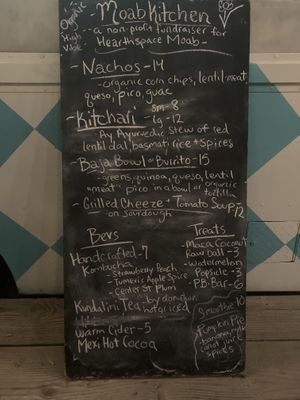 Organic
High
Vibe
Moab Kitchen
- a non-profit fundraiser for
Hearthspace Moab -
- Nachos - 14
- organic corn chips, lentil "meat"
queso, pico, guac
- Kitchari sm - 8
lg - 12
- Ay Ayurvedic stew of red
lentil dal, basmati rice + spices
- Baja Bowl or Burrito - 15
- greens, quinoa, queso, lentil
"meat" pico in a bowl or organic
tortilla
- Grilled Cheeze + Tomato Soup - 12
on sourdough
Bevs
Handcrafted - 7
Kombucha
- Strawberry Peach
- Turmeric Apple Spice
- Center St Plum
Kundalini Tea by donation
hot or iced
Warm Cider - 5
Mexi Hot Cocoa
Treats
- Maca Coconut
Raw Ball - 3
- Watermelon
Popsicle - 3
- PB Bar - 6
Smoothie - 10
Pumpkin Pie
- banana, mylk
carrot juice
spices